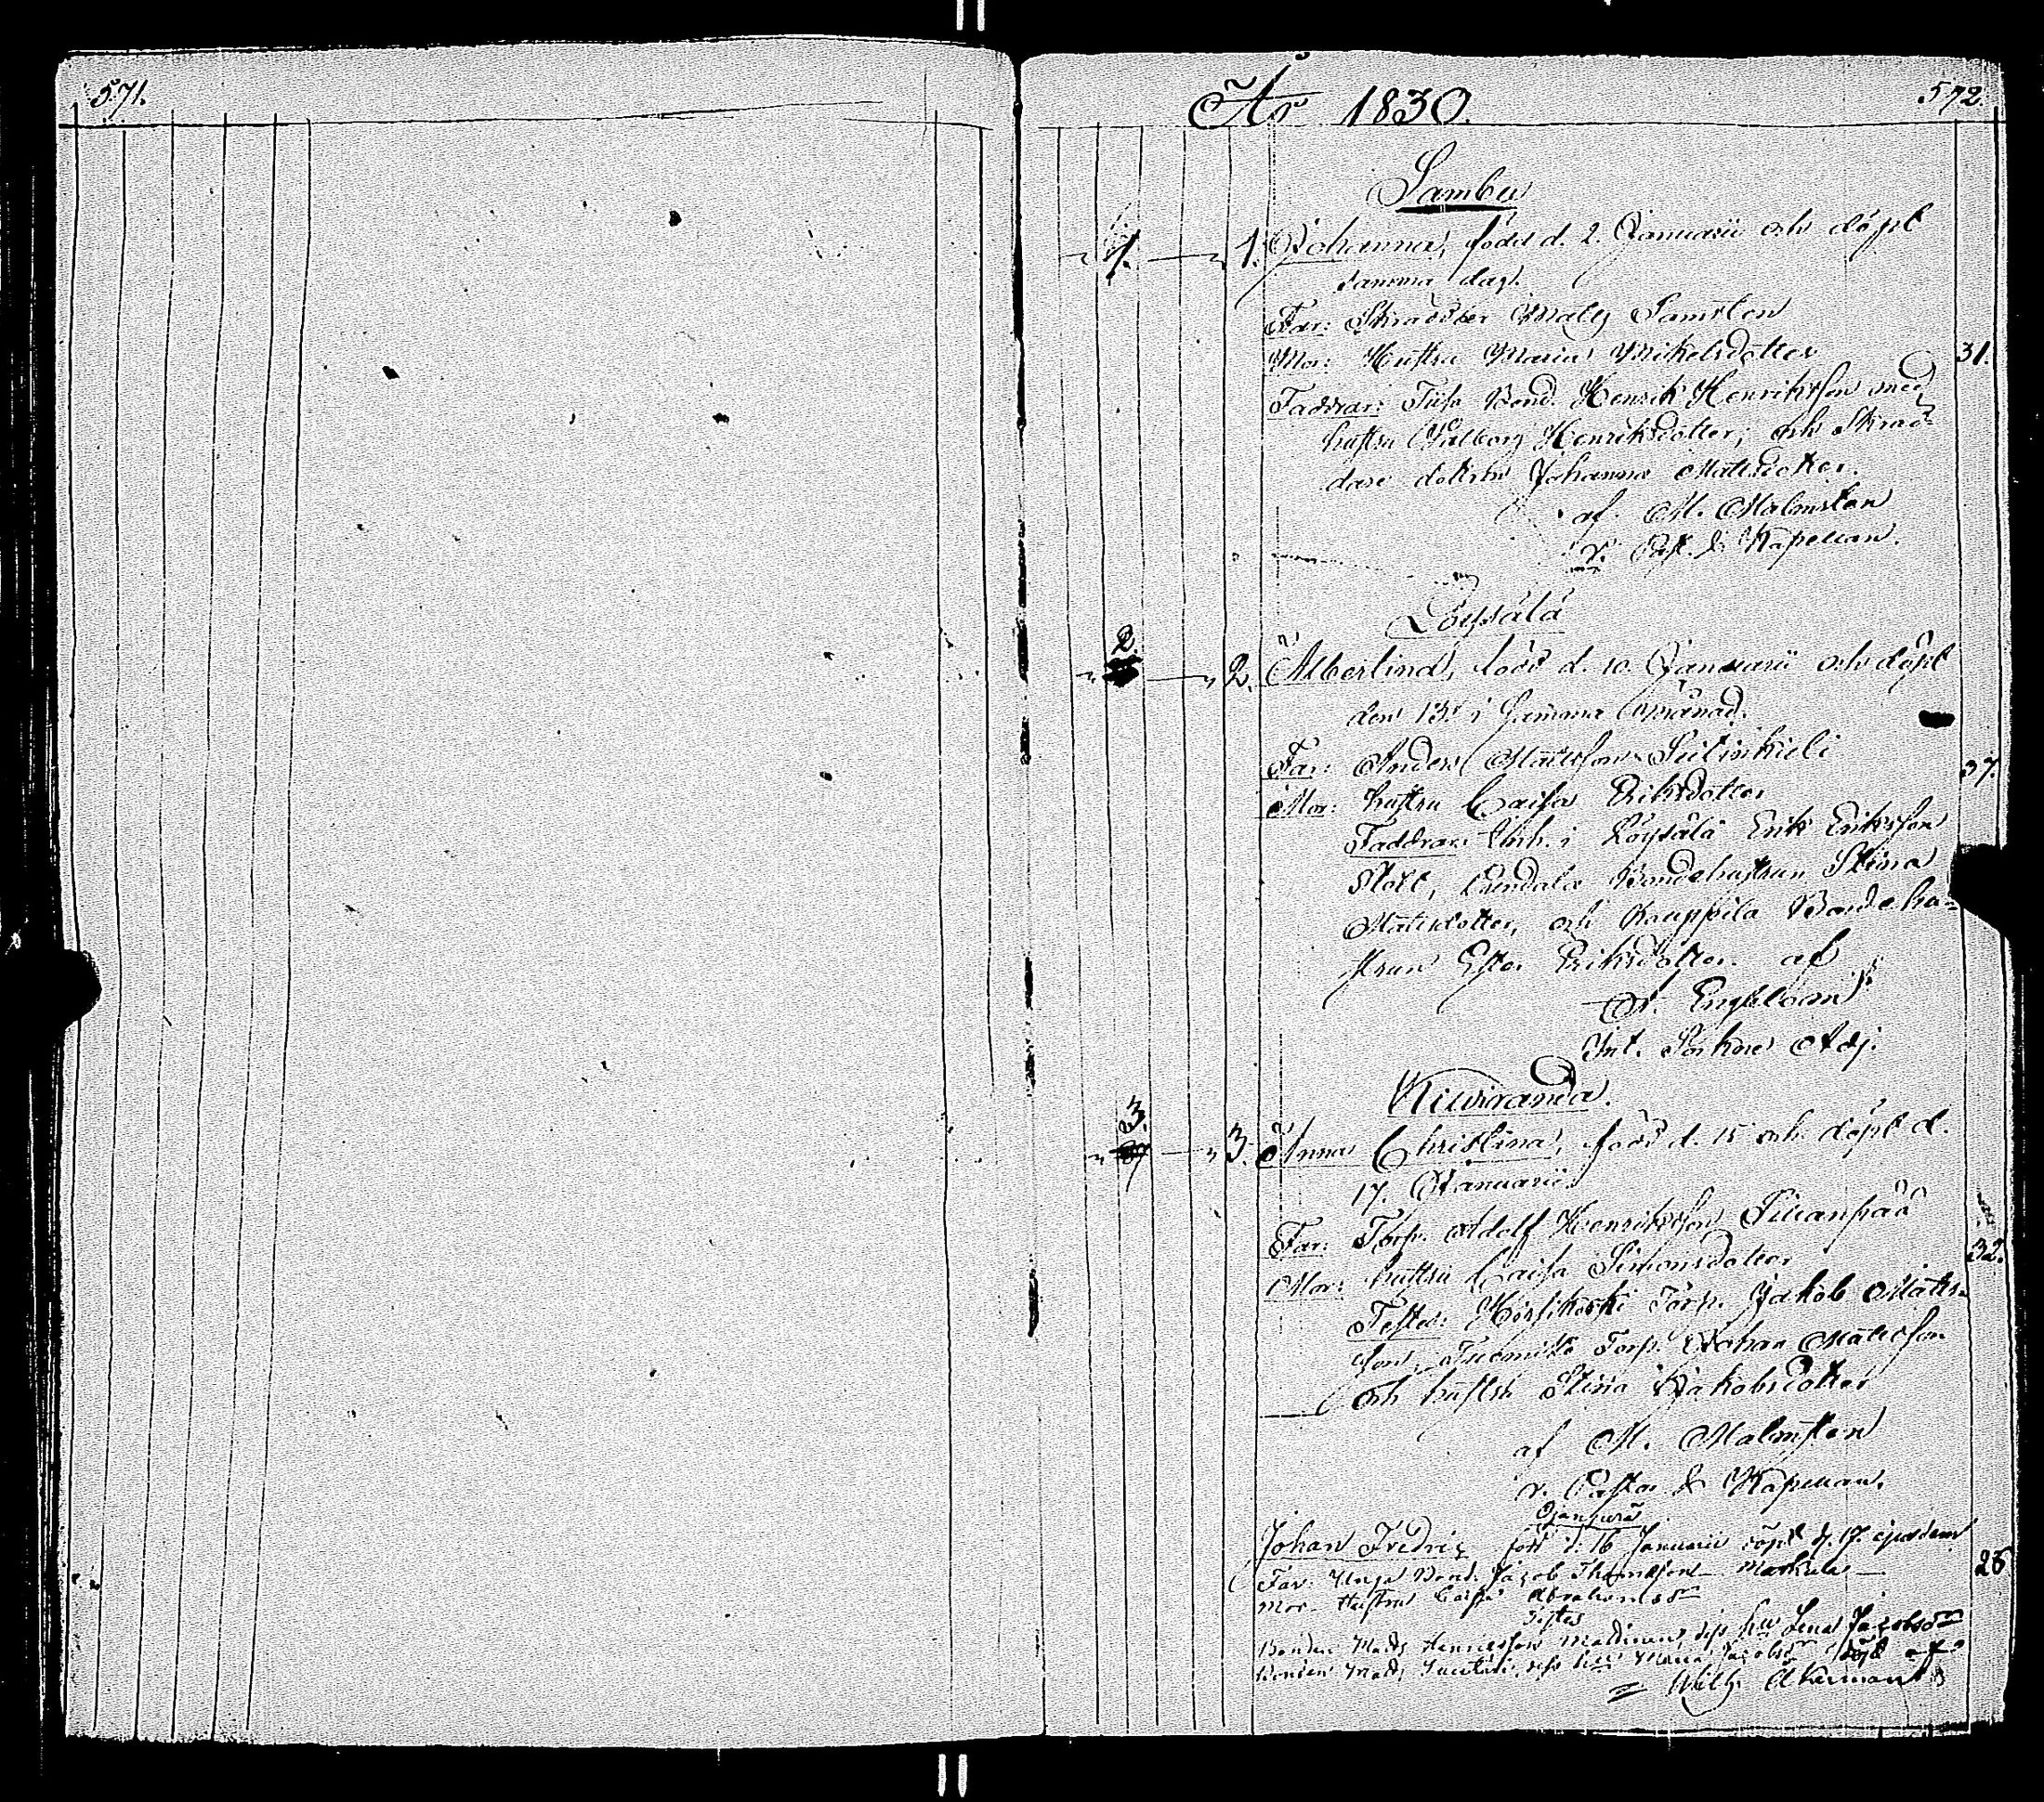 571.
572.
År 1830.
Sambu
1. 1. Johanna, född d. 2. Januarii och döpt
samma dag.
Far: Skräddar Mats Samsten
Mor: Hustru Maria Mikelsdotter
31.
Faddrar: Bond. Henrik Henriksson med
hustru Valborg Henriksdotter, och Skräd-
dare dottren Johanna Mattsdotter.
af M. Malmsten
v. Past. & Kapellan.
Löysälä
2. 2. Albertina, född d. 10. Januarii och döpt
den 13. i samma månad.
Far: Anders Mattsson
37.
Mor: hustru Caisa Eriksdotter
Faddrar: Inh. i Löysälä Erik Eriksson
Bondehustrun Stina
Mattsdotter, och Kauppila Bondehu-
strun Ester Eriksdotter. af
Engblom
Sokne Adj.
Kiwiranda.
3. 3. Anna Christina, född d. 15 och döpt d.
17. Januarii.
Far: Torp. Adolf Henriksson
32.
Mor: hustru Caisa Simonsdotter
Testes: Torp. Jakob Matts-
son, Torp. Johan Mattsson
och hustru Stina Jakobsdotter
af M. Malmsten
v. Pastor & Kapellan.
Johan Fredric född d. 16 Januarii döpt d. 17. ejusdem
Far: Unga Bond. Jacob Thomasson Markula
28
Mor Hustru Caisa Abrahamsdr
Testes
Bonden Matts Henricsson Lena Jacobsdr
Bonden Matts Maria Jacobsdr döpt af
Wilh. Åkerman